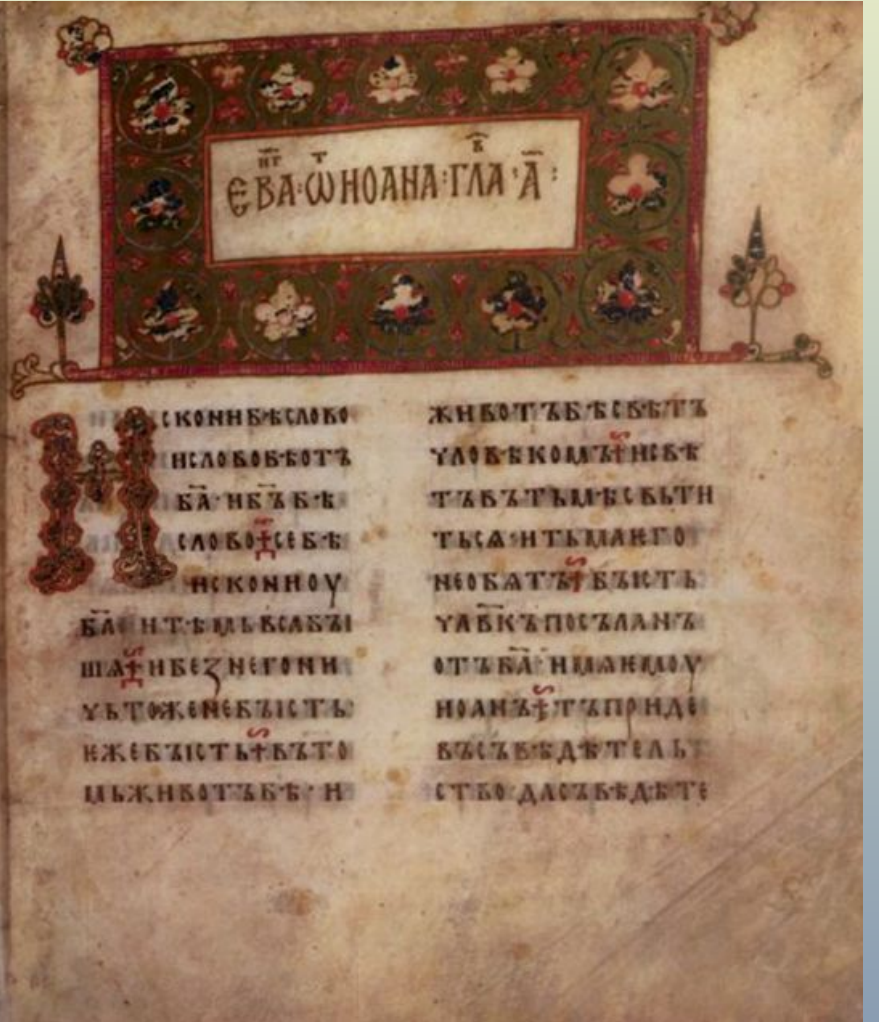 ЕВАНГ·ѾИОАНА·ГЛАВ·А҃:
ИСКОНИБѢСЛОВО
ИСЛОВОБѢОТЪ
Б҃А·ИБ҃ЪБѢ
СЛОВО✝СЕБѢ
ИСКОНИОУ
Б҃А·ИТѢМЬВСАБЪІ
ШѦ✝ИБЕЗНЕГОНИ
ЧЬТОЖЕНЕБЪІСТЬ·
ЕЖЕБЪІСТЬ✝ВЪТО
МЬЖИВОТЪБѢ·И
ЖИВОТЪБѢСВѢТЪ
ЧЛОВѢКОМЪ✝ИСВѢ
ТЪВЪТЬМѢСВЬТИ
ТЬСѦ·ИТЬМАѤГО
НЕОБѦТЪ✝БЪІСТЬ
ЧЛВ҃КЪПОСЪЛАНЪ
ОТЪБ҃А·ИМѦѤМОУ
ИОАНЪ✝ТЪПРИДЕ
ВЪСЪВѢДѢТЕЛЬ
СТВО·ДАСЪВѢДѢТЕ